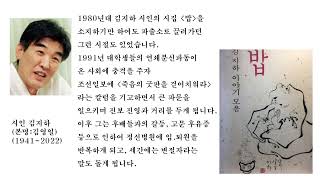 1980년대 김지하 시인의 시집 <밥>을
소지하기만 하여도 파출소로 끌려가던
그런 시절도 있었습니다.
1991년 대학생들의 연쇄분신파동이
온 사회에 충격을 주자
조선일보에 <죽음의 굿판을 걷어치워라>
라는 칼럼을 기고하면서 큰 파문을
일으키며 진보 진영과 거리를 두게 됩니다.
이후 그는 후배들과의 갈등, 고문 후유증
등으로 인하여 정신병원에 입,퇴원을
반복하게 되고, 세간에는 변절자라는
말도 돌게 됩니다.
시인 김지하
(본명:김영일)
(1941~2022)
밥
김지하 이야기 모음